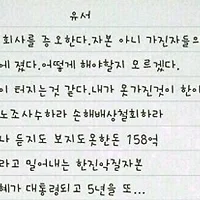 유서
회사를 증오한다.자본 아니 가진자들의
에 졌다.어떻게 해야할지 모르겠다.
이 터지는것 같다.내가 못가진것이 한이
노조사수하라 손해배상철회하라
나 듣지도 보지도못한돈 158억
라고 밀어내는 한진악질자본
혜가 대통령되고 5년을 또...